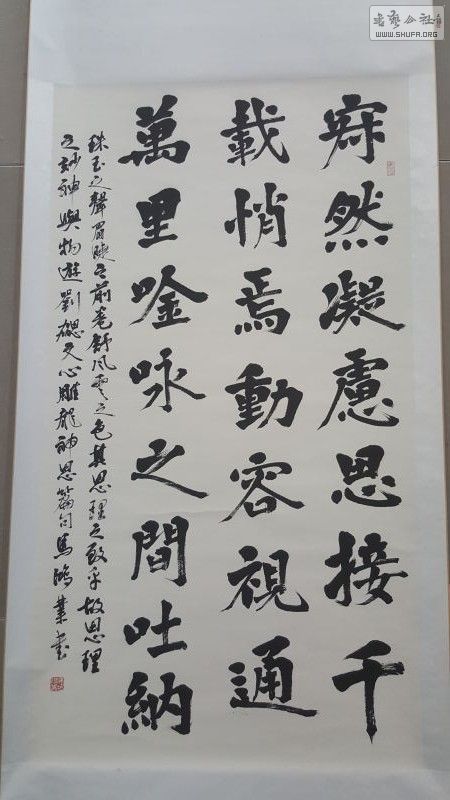 寂然凝慮思接千
載悄焉動容視通
萬里唫咏之間吐納
珠玉之聲眉睫之前卷舒風雲之色其思理之致乎故思理
之妙神與物遊劉勰文心雕龍神思篇句馬鴻業書
書藝公社
WWW.SHUFA.ORG